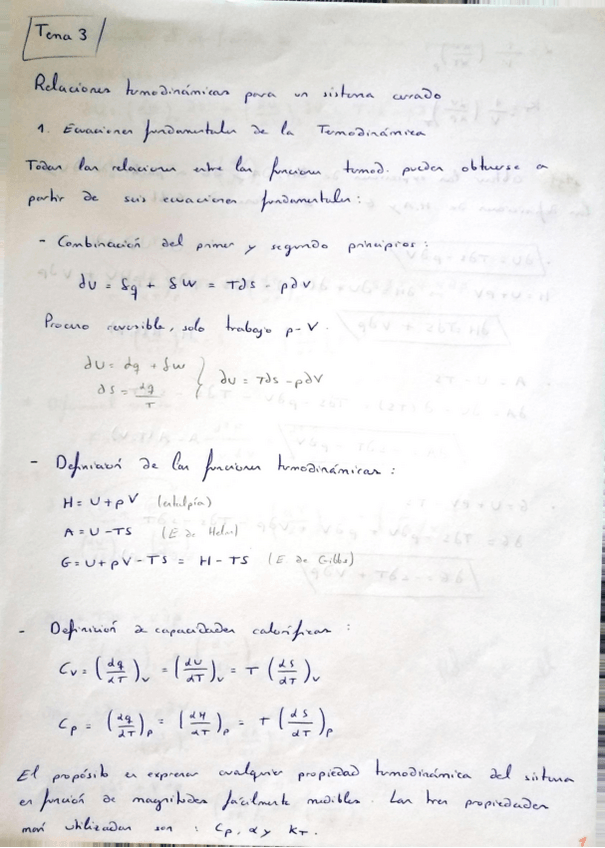 Tema 3
Relaciones termodinámicas para un sistema cerrado
1. Ecuaciones fundamentales de la Termodinámica
Todas las relaciones entre las funciones termod. pueden obtenerse a
partir de seis ecuaciones fundamentales:
- Combinación del primer y segundo principios:
dU = δq + δW = TdS - pdV
Proceso reversible, solo trabajo p-V.
dU = dq + δW
dS = dq/T } dU = TdS - pdV
- Definición de las funciones termodinámicas:
H = U + pV (entalpía)
A = U - TS (E de Helm)
G = U + pV - TS = H - TS (E. de Gibbs)
- Definición de capacidades caloríficas:
Cv = (dq/dT)v = (dU/dT)v = T (dS/dT)v
Cp = (dq/dT)p = (dH/dT)p = T (dS/dT)p
El propósito es expresar cualquier propiedad termodinámica del sistema
en función de magnitudes fácilmente medibles. Las tres propiedades
más utilizadas son: Cp, α y KT.
1